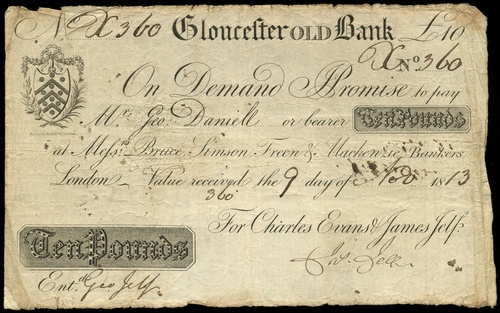 No X360 Gloucester OLD Bank £10
X No. 360
On Demand I Promise to pay
Mr. Geo: Daniell or bearer Ten Pounds
at Messrs. Bruce, Simson, Freer & Mackenzie Bankers
London Value received the 9 day of Feb 1813
360
For Charles Evans & James Jelf
Ten Pounds Jas. Jelf
Entd. Geo Jelf